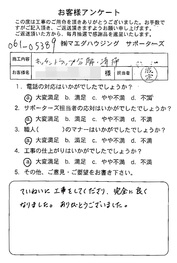 お客様アンケート
この度は工事のご用命を頂きありがとうございました。お手数で
すがご記入頂き、ご返送頂きますようお願い申し上げます。
ご返送頂いた方から、毎月抽選で感謝品を進呈いたします。
061-05389 ㈱マエダハウジング サポーターズ
様 担当者
1. 電話の対応はいかがでしたでしょうか?
a. 大変満足 b. 満足 c. やや不満 d. 不満
2. サポーターズ担当者の対応はいかがでしたでしょうか?
a. 大変満足 b. 満足 c. やや不満 d. 不満
3. 職人( )のマナーはいかがでしたでしょうか?
a. 大変満足 b. 満足 c. やや不満 d. 不満
4. 工事の仕上がりはいかがでしたでしょうか?
a. 大変満足 b. 満足 c. やや不満 d. 不満
5. その他、ご意見・ご要望をお書き下さい。
ていねいに工事をしてくださり、完全に良く
なりました。ありがとうございました。